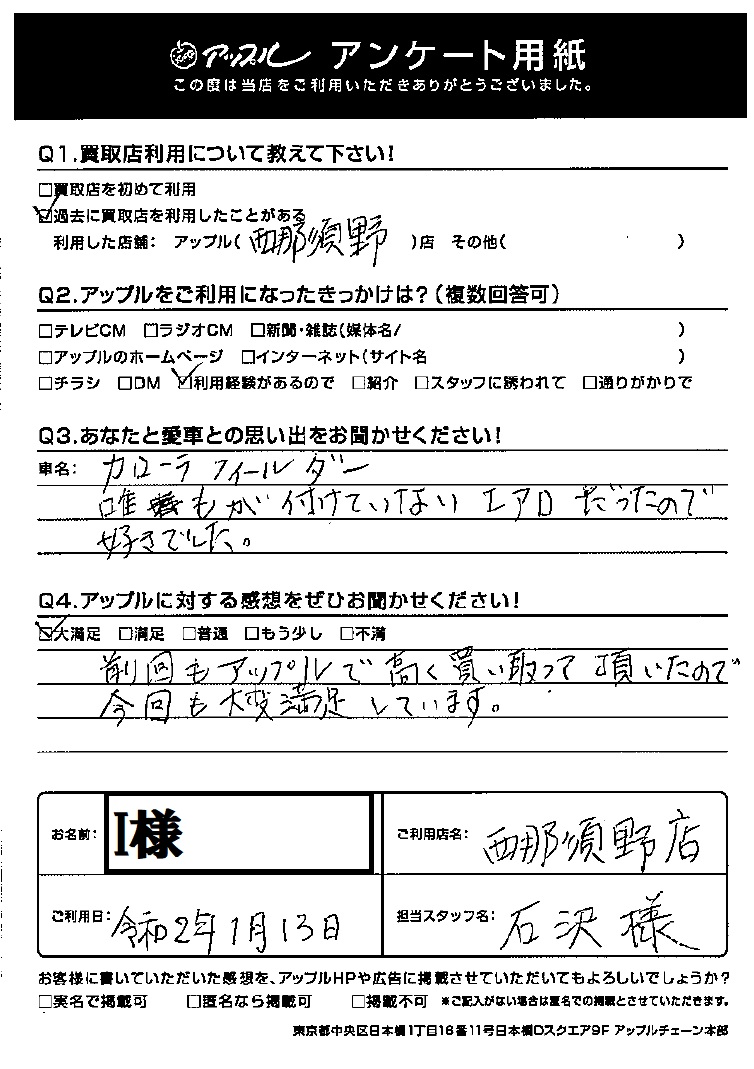 アップル アンケート用紙
この度は当店をご利用いただきありがとうございました。
Q1.買取店利用について教えて下さい!
□買取店を初めて利用
☑過去に買取店を利用したことがある
利用した店舗: アップル(西那須野)店 その他( )
Q2.アップルをご利用になったきっかけは?(複数回答可)
□テレビCM □ラジオCM □新聞・雑誌(媒体名/ )
□アップルのホームページ □インターネット(サイト名 )
□チラシ □DM ☑利用経験があるので □紹介 □スタッフに誘われて □通りがかりで
Q3.あなたと愛車との思い出をお聞かせください!
車名: カローラフィールダー
唯もが付けていないエアロだったので
好きでした。
Q4.アップルに対する感想をぜひお聞かせください!
☑大満足 □満足 □普通 □もう少し □不満
前回もアップルで高く買い取って頂いたので
今回も大変満足しています。
お名前: I様
ご利用店名: 西那須野店
ご利用日: 令和2年1月13日
担当スタッフ名: 石沢様
お客様に書いていただいた感想を、アップルHPや広告に掲載させていただいてもよろしいでしょうか?
□実名で掲載可 □匿名なら掲載可 □掲載不可 ※ご記入がない場合は匿名での掲載とさせていただきます。
東京都中央区日本橋1丁目16番11号日本橋Dスクエア9F アップルチェーン本部